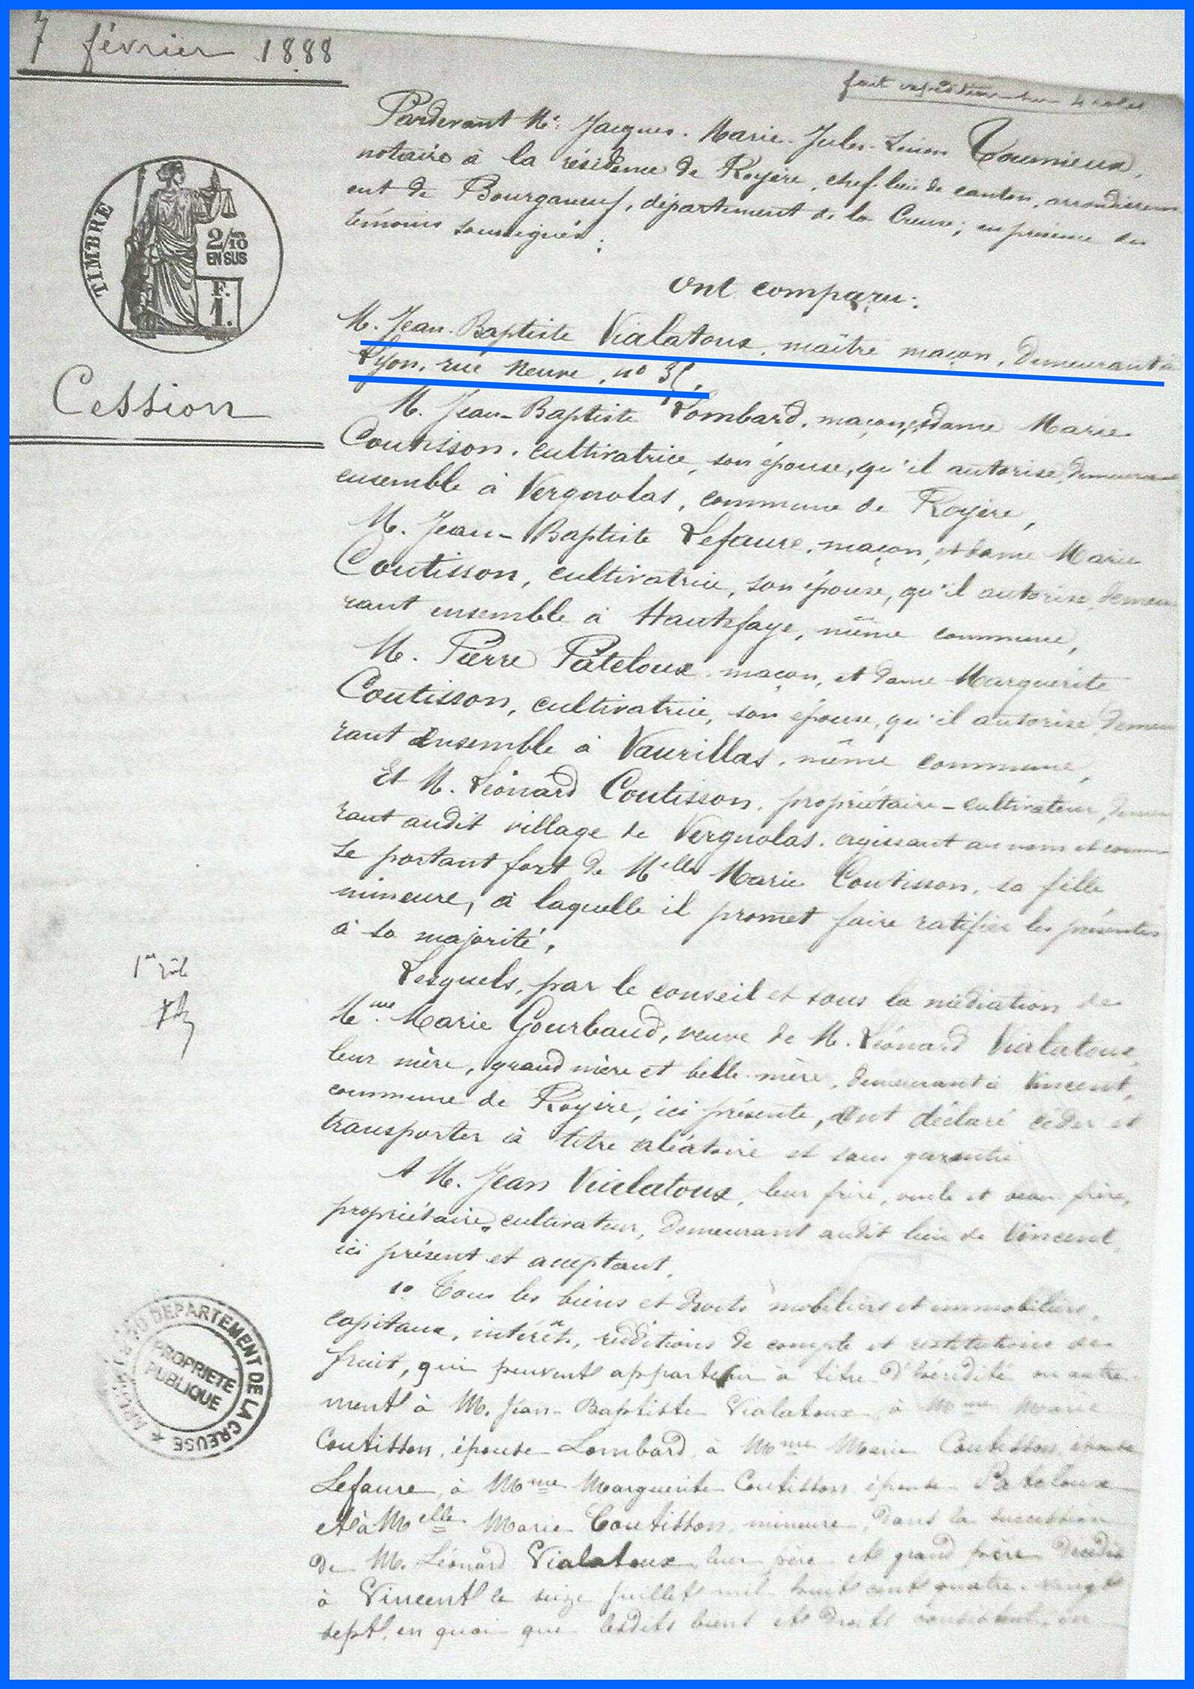 7 février 1888
fait expédition
TIMBRE
2/10
EN SUS
F.
1.
Cession
Pardevant Me. Jacques-Marie-Jules-Lucien Toumieux,
notaire à la résidence de Royère, chef-lieu de canton, arrondissem
ent de Bourganeuf, département de la Creuse; en présence des
témoins soussignés:
Ont comparu:
M. Jean-Baptiste Vialatoux, maître maçon, demeurant à
Lyon, rue Neuve, no 35,
M. Jean-Baptiste Lombard, maçon, et dame Marie
Coutisson, cultivatrice, son épouse, qu'il autorise, demeurant
ensemble à Vergnolas, commune de Royère,
M. Jean-Baptiste Lefaure, maçon, et dame Marie
Coutisson, cultivatrice, son épouse, qu'il autorise, demeu
rant ensemble à Hautefaye, même commune,
M. Pierre Pateloux, maçon, et dame Marguerite
Coutisson, cultivatrice, son épouse, qu'il autorise, demeu
rant ensemble à Vaurillas, même commune,
Et M. Léonard Coutisson, propriétaire-cultivateur, demeu
rant audit village de Vergnolas, agissant au nom et comme
se portant fort de Melle Marie Coutisson, sa fille
mineure, à laquelle il promet faire ratifier les présentes
à sa majorité,
Lesquels, par le conseil et sous la médiation de
Mme Marie Gourbaud, veuve de M. Léonard Vialatoux,
leur mère, grand'mère et belle-mère, demeurant à Vincent,
commune de Royère, ici présente, ont déclaré céder et
transporter à titre aléatoire et sans garantie
A M. Jean Vialatoux, leur frère, oncle et beau-frère,
propriétaire, cultivateur, demeurant audit lieu de Vincent,
ici présent et acceptant,
1o Tous les biens et droits mobiliers et immobiliers,
capitaux, intérêts, redditions de compte et restitutions de
fruit, qui peuvent appartenir à titre d'hérédité ou autre-
ment à M. Jean-Baptiste Vialatoux, à Mme Marie
Coutisson, épouse Lombard, à Mme Marie Coutisson, épouse
Lefaure, à Mme Marguerite Coutisson, épouse Pateloux
et à Melle Marie Coutisson, mineure, dans la succession
de M. Léonard Vialatoux, leur père et grand père, décédé
à Vincent le seize juillet mil huit cent quatre-vingt
sept, en quoi que lesdits biens et droits consistent, en
1er rôle
ARCHIVES DU DEPARTEMENT DE LA CREUSE
PROPRIETE
PUBLIQUE